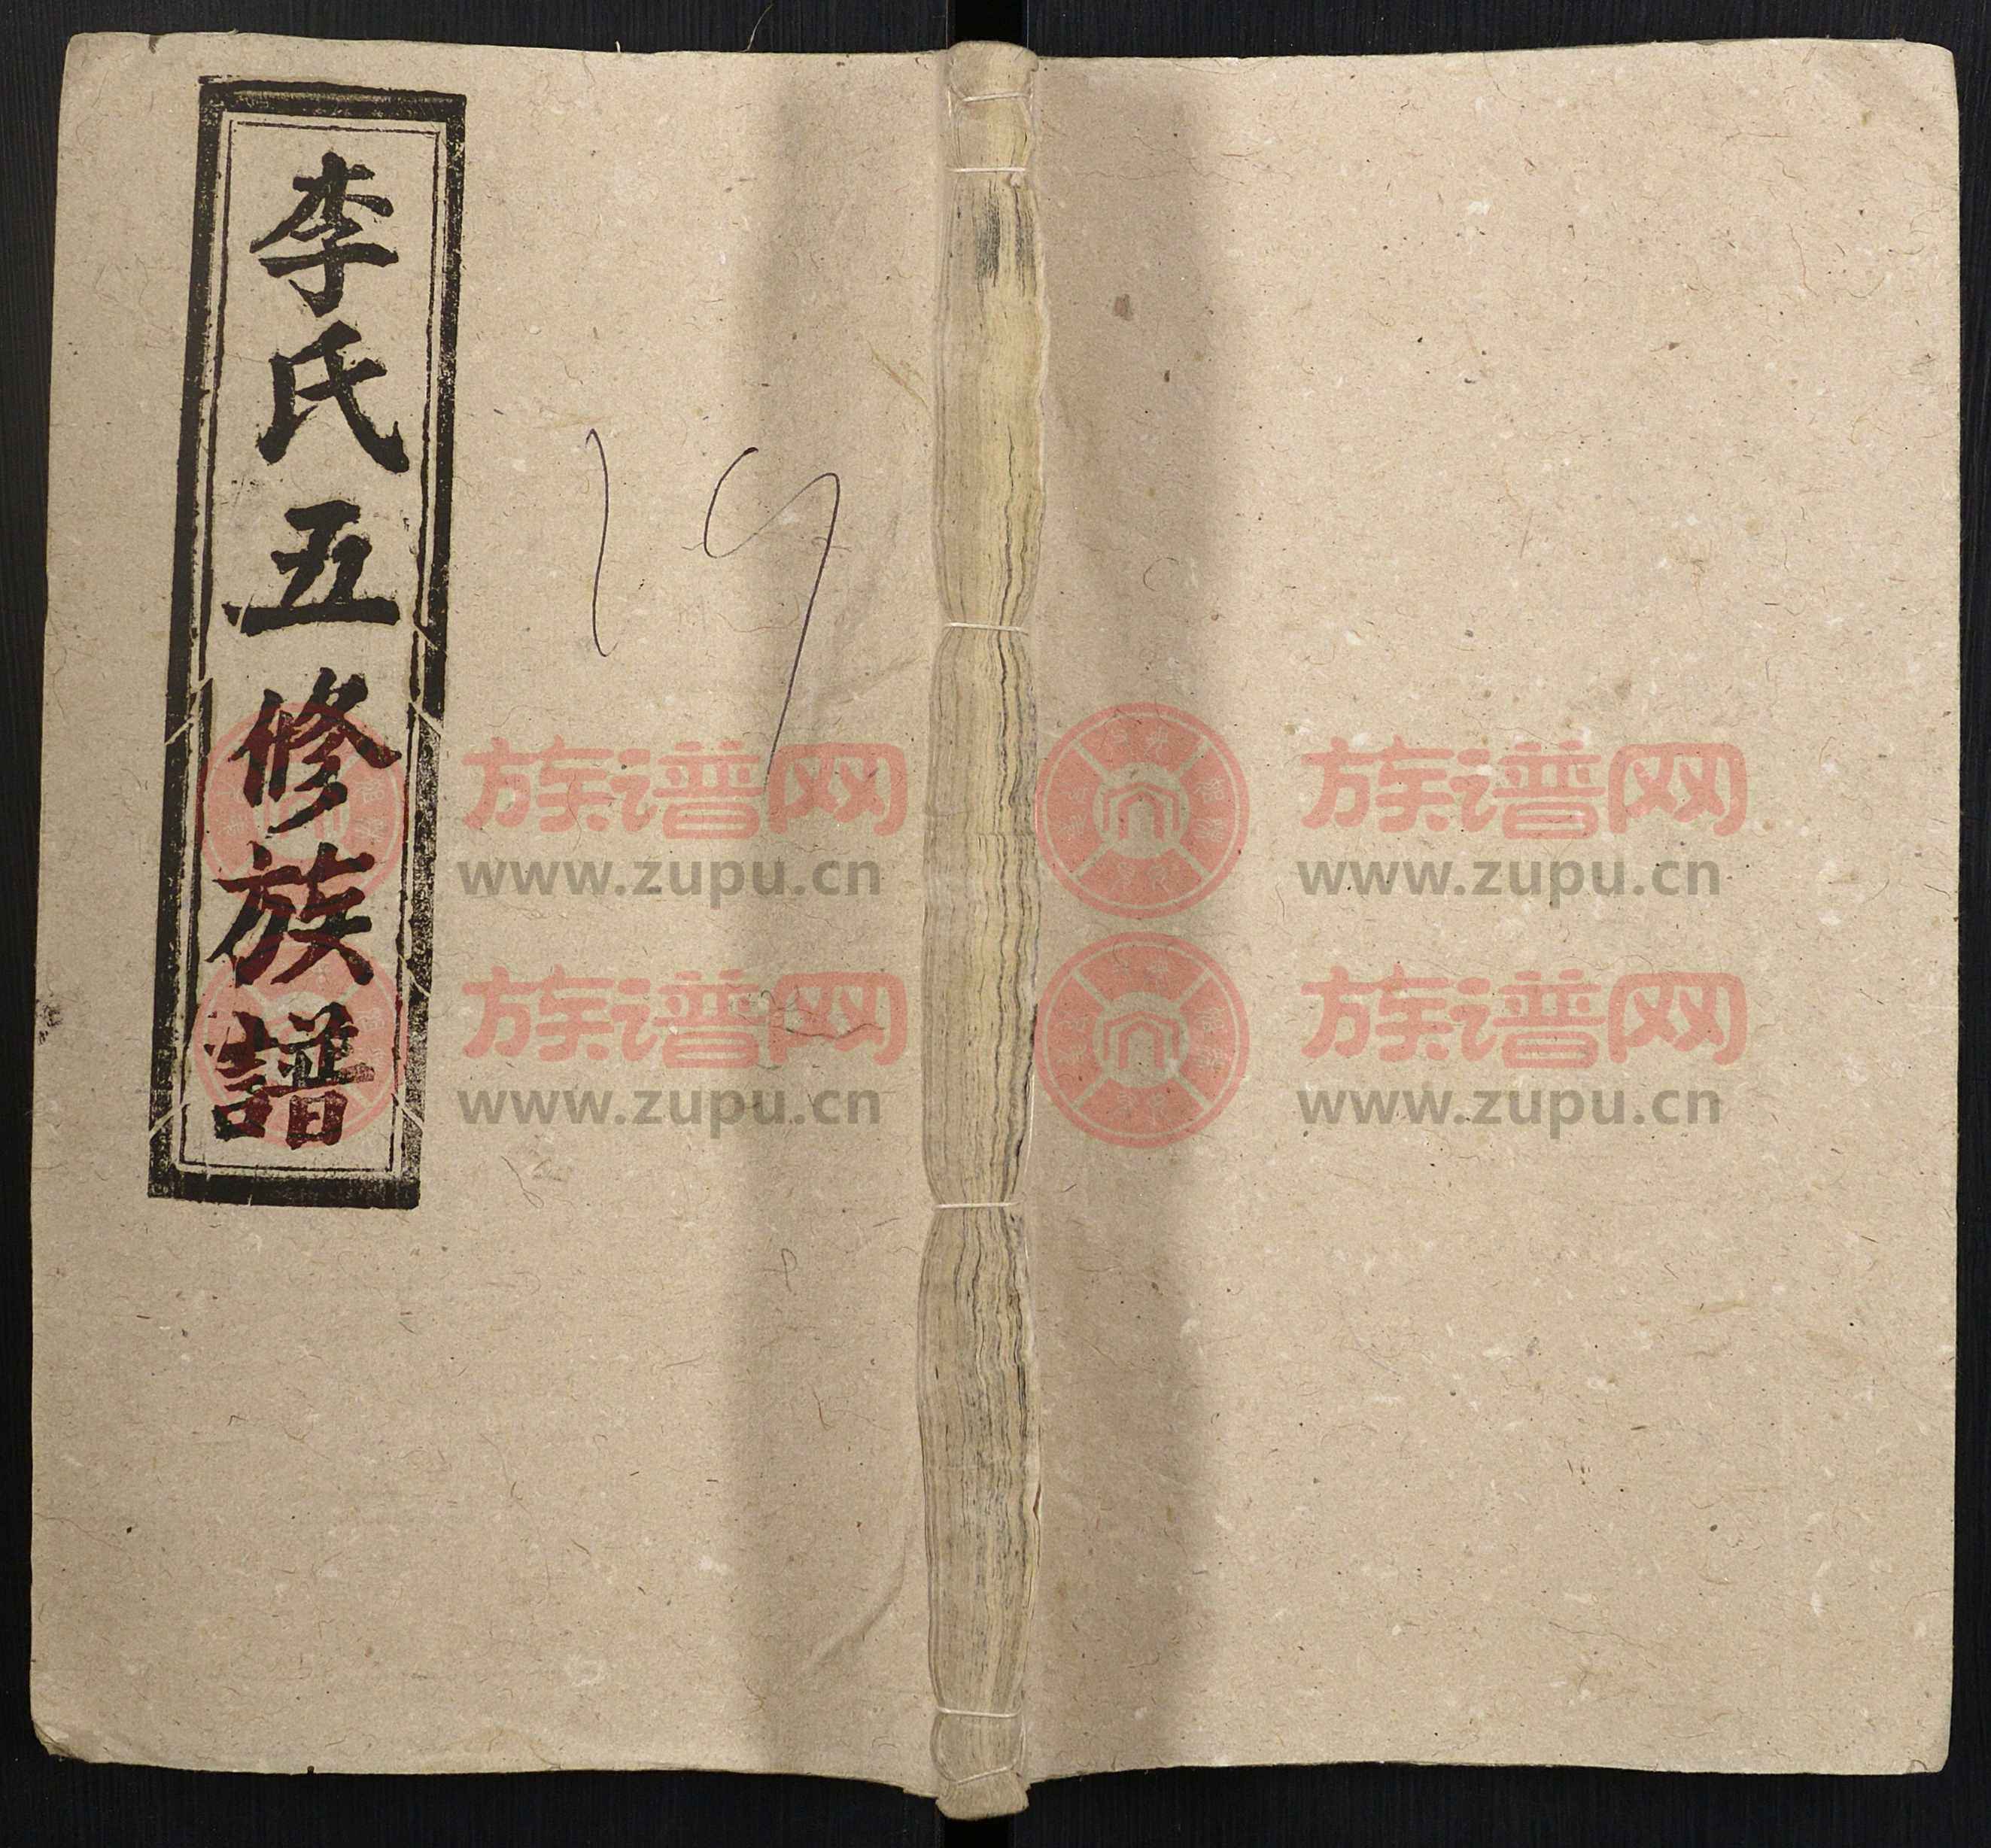 李氏五修族譜
19
族谱网 族谱网
www.zupu.cn www.zupu.cn
族谱网 族谱网
www.zupu.cn www.zupu.cn